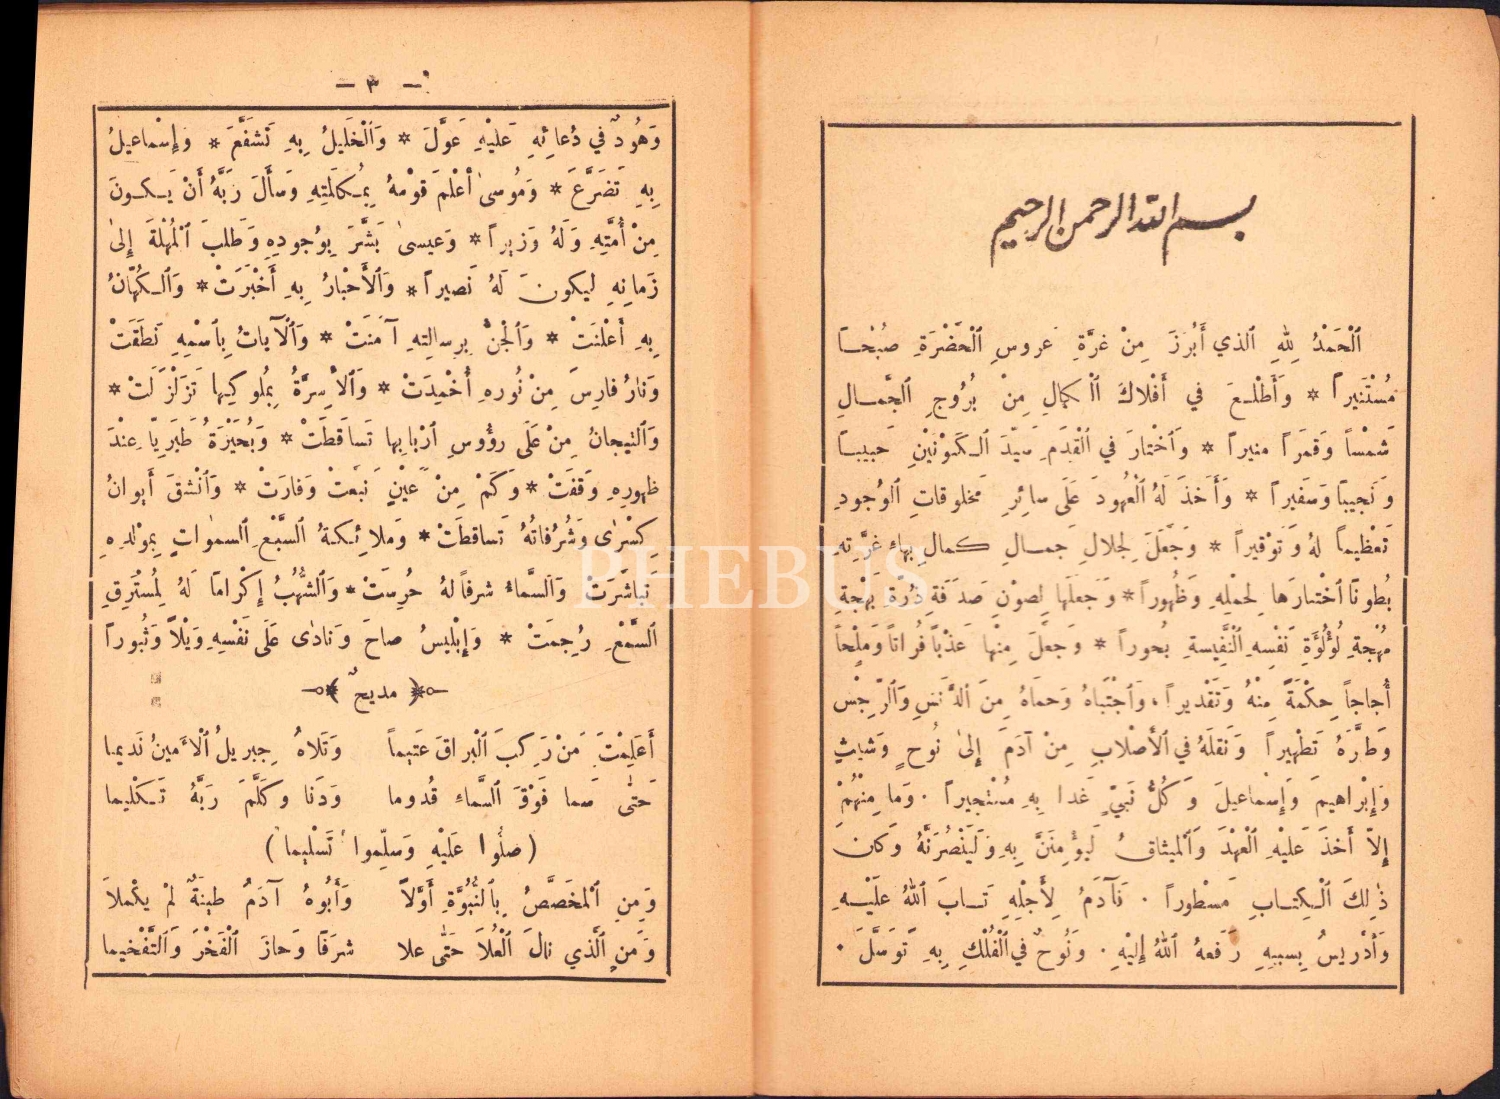 بسم الله الرحمن الرحيم
اَلْحَمْدُ لِلّٰهِ ٱلذي أَبْرَزَ مِنْ غرَّةِ عَروسِ ٱلْحَضْرَةِ صُبْحًا
مُسْتَنيراً * وَأَطْلَعَ في أَفْلاكِ ٱلْكمالِ مِنْ بُرُوجِ ٱلجَّمالِ
شَمْساً وَقَمَرًا منيراً * وَٱخْتارَ في ٱلْقِدَمِ سَيِّدَ ٱلْكَوْنَيْنِ حَبيبًا
وَنَجيبًا وَسَفيراً * وَأَخَذَ لَهُ ٱلْعُهُودَ عَلَى سائِرِ مَخلوقاتِ ٱلوُجودِ
تَعْظيماً لهُ وَتَوْقيراً * وَجَعَلَ لِجلالِ جَمالِ كمالِ بهاءِ غرَّتِهِ
بُطونًا ٱخْتارَها لِحَمْلِهِ وَظُهوراً * وَجَعَلَها لِصَوْنِ صَدَفَةِ دُرَّةِ بَهْجَةِ
مُهْجَةِ لُؤْلُؤَةِ نَفْسِهِ ٱلْنَّفِيسةِ بُحوراً * وَجَعَلَ مِنْها عَذْباً فُراتاً وَمِلْحاً
أُجاجاً حِكْمَةً مِنْهُ وَتَقْديراً ، وَٱجْتَباهُ وَحماهُ مِنَ ٱلدَّنَسِ وَٱلرِّجْسِ
وَطهَّرَهُ تَطْهيراً وَنَقلَهُ في ٱلأَصْلابِ مِنْ آدَمَ إِلىٰ نُوحٍ وَشيثٍ
وَإِبْراهيمَ وَإِسْماعيلَ وَكُلُّ نَبيٍّ غَدا بِهِ مُسْتَجيراً . وَما مِنهُمْ
إِلاّ أَخذَ عَلَيْهِ ٱلْعَهْدَ وَٱلْميثاقُ لَيُؤْمِنَنَّ بِهِ وَلَيَنْصُرَنَّهُ وَكانَ
ذٰلِكَ ٱلْكِتابِ مَسْطوراً . فَآدَمُ لِأَجْلِهِ تَابَ ٱللهُ عَلَيْهِ
وَأدْريسُ بِسببِهِ رَفَعهُ ٱللهُ إِليْهِ . وَنُوحٌ في ٱلْفُلْكِ بِهِ تَوَسَّلَ .
— ٣ —
وَهُودٌ في دُعائِهِ عَليْهِ عَوَّلَ * وَاَلْخَليلُ بِهِ تَشفَّعَ * وَإِسْماعيلُ
بِهِ تَضَرَّعَ * وَمُوسىٰ أَعْلَمَ قَوْمَهُ بِمُكالَمَتِهِ وَسأَلَ رَبَّهُ أَنْ يَكونَ
مِنْ أُمَّتِهِ وَلَهُ وَزيراً * وَعيسىٰ بَشَّرَ بِوُجودِهِ وَطَلبَ ٱلْمُهْلَةَ إِلىٰ
زَمانِهِ لِيكونَ لَهُ نَصيراً * وَٱلأَحْبارُ بِهِ أَخْبَرَتْ * وَٱلْكُهّانُ
بِهِ أَعْلنَتْ * وَٱلْجِنُّ بِرِسالَتِهِ آمَنَتْ * وَٱلآياتُ بِٱسْمِهِ نَطَقَتْ
وَنارُ فارِسَ مِنْ نُورِهِ أُخْمِدَتْ * وَٱلأَسِرَّةُ بِمُلوكِها تَزَلْزَلَتْ *
وَٱلتيجانُ مِنْ عَلَى رؤُوسِ أَرْبابِها تَساقَطَتْ * وَبُحَيْرَةُ طَبَرِيّا عِنْدَ
ظهورِهِ وَقَفَتْ * وَكَمْ مِنْ عَيْنٍ نَبَعَتْ وَفارَتْ * وَٱنْشَقَّ أَيوانُ
كِسْرٰى وَشُرُفاتُهُ تَساقطَتْ * وَملائِكةُ ٱلسَّبْعِ ٱلسمٰواتِ بِموْلِدِهِ
تَباشَرَتْ وَٱلسَّماءُ شرفاً لهُ حُرِسَتْ * وَٱلشُّهُبُ إِكْرامًا لَهُ لِمُسْتَرِقِ
ٱلسَّمْعِ رُجِمَتْ * وَإِبْليسُ صاحَ وَنادٰى عَلَى نَفْسِهِ وَيْلاً وَثُبوراً
مديح
أَعَلِمْتَ مَنْ رَكِبَ ٱلْبراقَ عَتيماً وَتَلاهُ جِبريلُ ٱلأَمينُ نَديما
حَتّى سَما فَوْقَ ٱلسَّماءِ قُدوما وَدَنا وَكَلَّمَ رَبَّهُ تَكْليما
(صلُّوا عَلَيْهِ وَسَلِّموا تَسْليما)
وَمنِ ٱلْمخَصَّصُ بِٱلنُّبُوَّةِ أَوَّلاً وَأَبُوهُ آدَمُ طينَةٌ لَمْ يكْملاَ
وَمَنِ ٱلَّذي نالَ ٱلْعُلاَ حَتّى علا شرَفًا وَحازَ ٱلْفَخْرَ وَٱلتَّفْخيما
PHEBUS